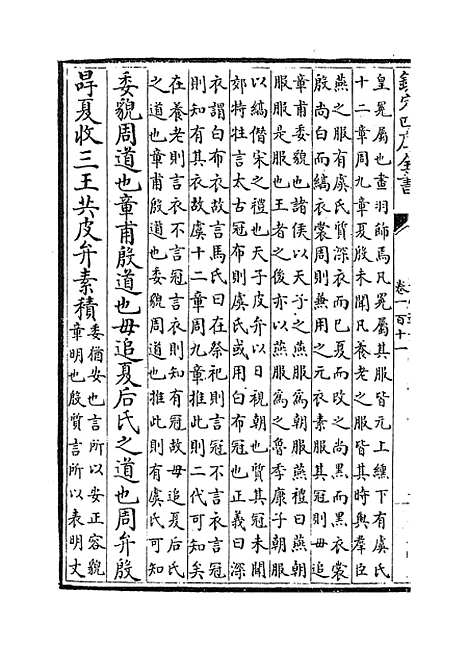 欽定四庫全書
卷一百十一
皇冕屬也畫羽飾焉凡冕屬其服皆元上纁下有虞氏
十二章周九章夏殷未聞凡養老之服皆其時與羣臣
燕之服有虞氏質深衣而已夏而改之尚黑而黑衣裳
殷尚白而縞衣裳周則兼用之元衣素服其冠則毋追
章甫委貌也諸侯以天子之燕服為朝服燕禮曰燕朝
服服是服也王者之後亦以燕服為之魯季康子朝服
以縞僭宋之禮也天子皮弁以日視朝也質其冠未聞
郊特牲言太古冠布則虞氏或用白布冠也正義曰深
衣謂白布衣故言馬氏曰在祭祀則言冠不言衣言冠
則知有其衣故虞十二章周九章推此則二代可知矣
在養老則言衣不言冠言衣則知有冠故毋追夏后氏
之道也章甫殷道也委貌周道也推此則有虞氏可知
委貌周道也章甫殷道也毋追夏后氏之道也周弁殷
冔夏收三王共皮弁素積
委猶安也言所以安正容貌
章明也殷質言所以表明丈